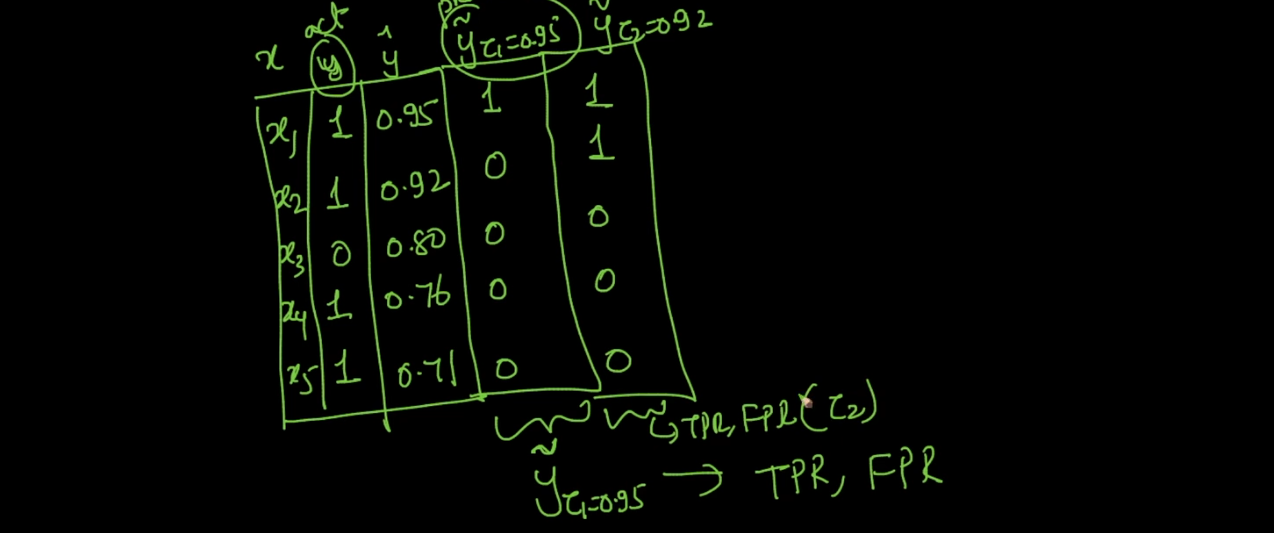 x act y ŷ ỹτ₁=0.95 ỹτ₂=0.92
x₁ 1 0.95 1 1
x₂ 1 0.92 0 1
x₃ 0 0.80 0 0
x₄ 1 0.76 0 0
x₅ 1 0.71 0 0
TPR, FPR(τ₂)
ỹτ₁=0.95 → TPR, FPR